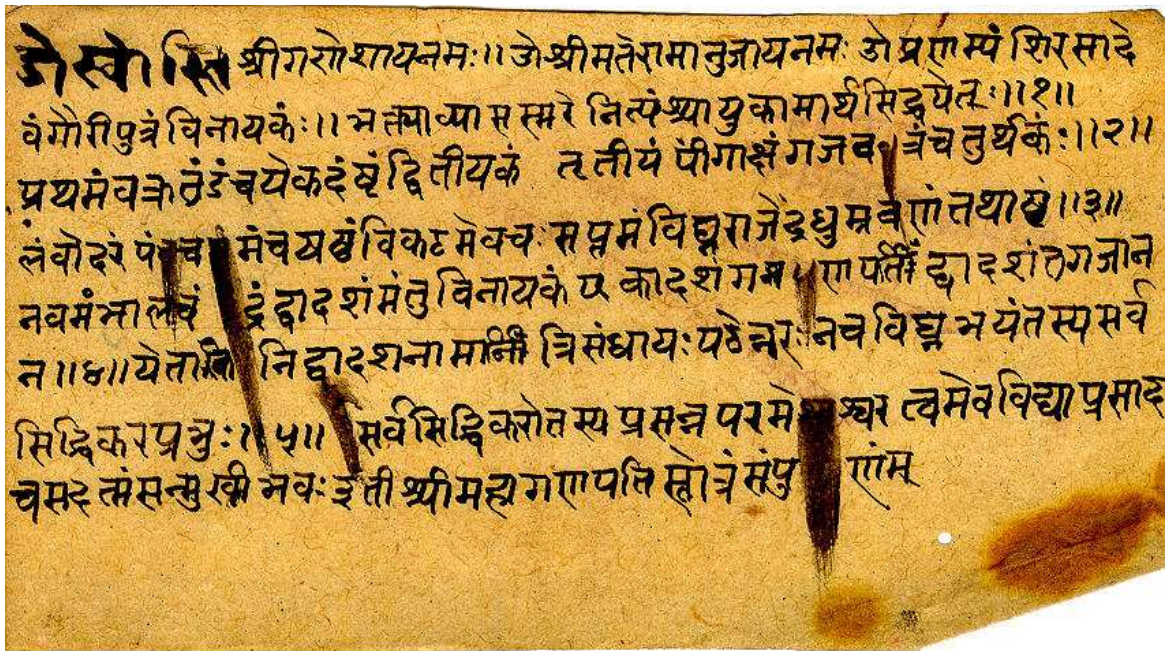 ओं स्वास्ति श्रीगणेशायनमः॥ ओं श्रीमतेरामानुजायनमः ओं प्रणम्यं शिरसादे
वंगौरीपुत्रंविनायकंः॥ भक्त्याव्यासस्मरे नित्यंश्यायुकामार्थसिद्धयेत्ः॥१॥
प्रथमंवक्रतुंडंचयेकदंष्ट्रंद्वितीयकं तृतीयं पींगाक्षंगजव त्रंचतुर्थकंः॥२॥
लंवोदरं पं मंचषष्ठंविकटमेवचः सप्तमंविघ्नराजेंद्रधुम्रवर्णंतथाष्टं॥३॥
नवमंभालचं द्रंद्वादशंमंतुविनायकं एकादशंग णपतीं द्वादशंतगजान
न॥४॥येता निद्वादशनामानी त्रिसंधायःपठेन्नरःनचविघ्नभयंतस्यसर्व
सिद्धिकरप्रभुः॥५॥ सर्वसिद्धिकरोतस्यप्रसन्नपरमे श्वर त्वमेवविद्याप्रसाद
सन्मुखी भवः इती श्यीमहागणपतिस्तोत्रंसंपु र्णंम्